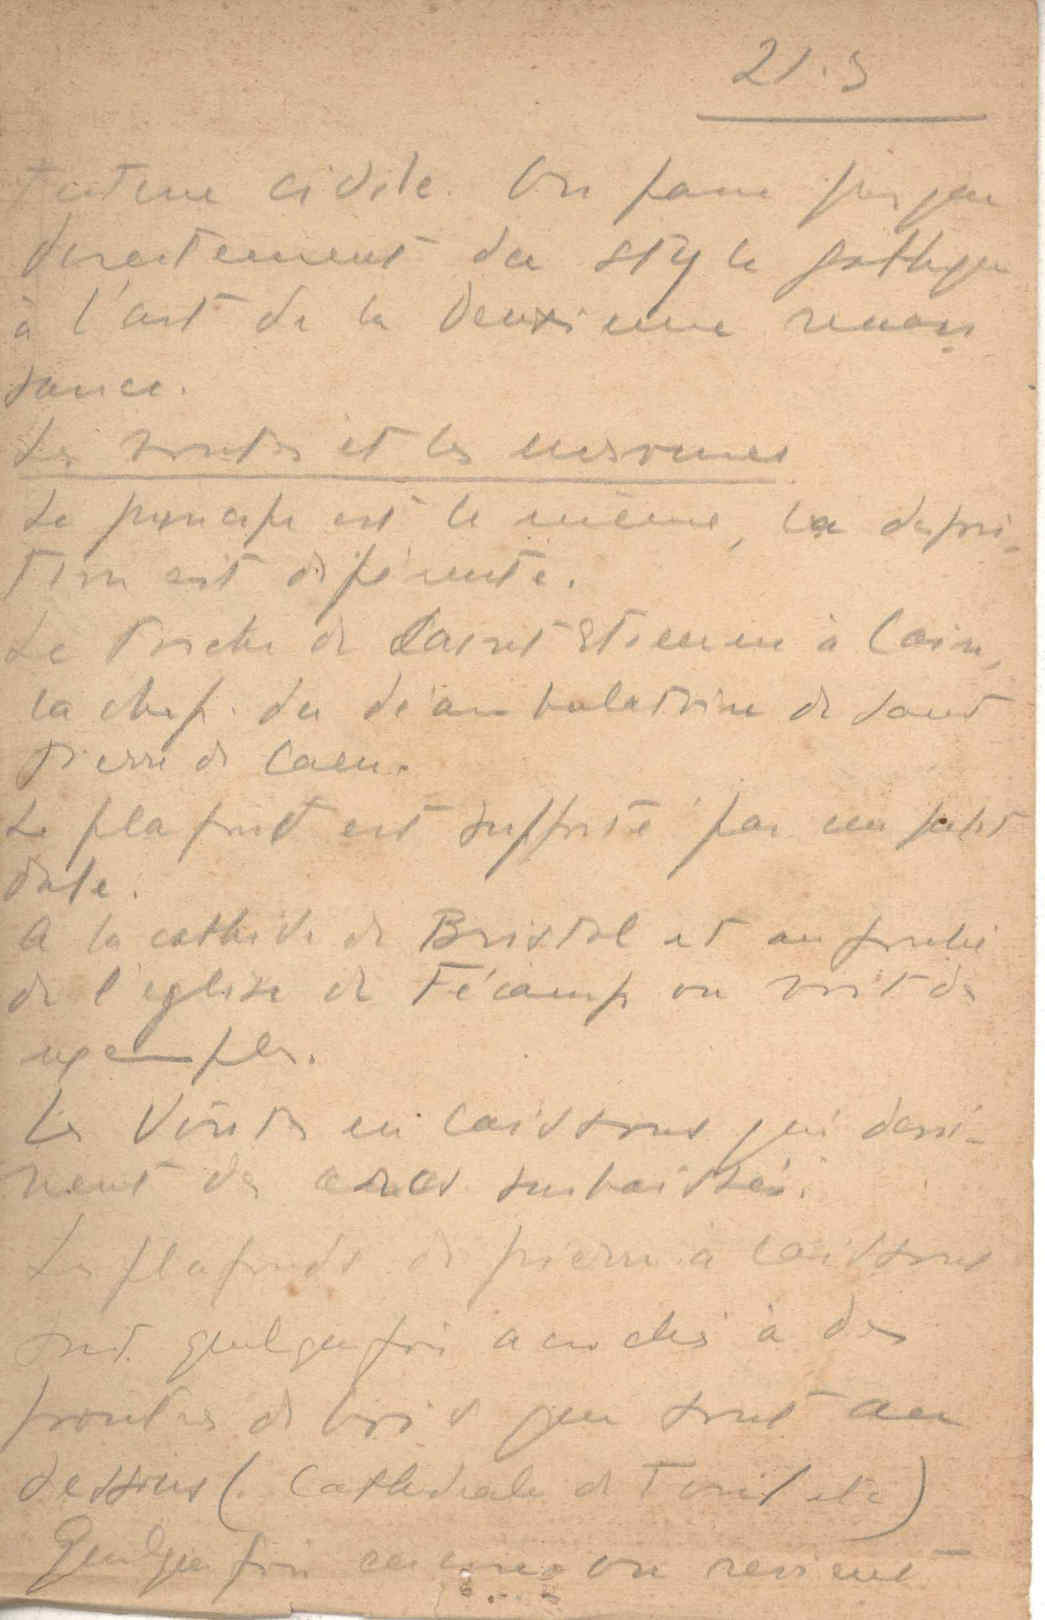 21.5
tecture civile. On passe presque
directement du style gothique
à l'art de la Deuxième renais
sance.
Les voutes et les
Le principe est le même, la dispósi-
tion est diférente.
Le Porche de Saint Etienne à Caen,
la chap. du déambulatoire de Saint
Pierre de Caen.
Le plafond est supporté par un petit
dale.
A la cathéde de Bristol et au
de l'église de Fécamp on voit des
exemples.
Les Voutes en Caissons qui dessi-
nent des arcs surbaissés.
Les plafonds de pierre à caissons
sont quelquefois acrochés à des
poutres de bois que sont au
dessous (Cathédrale de Toul etc)
Quelquefois encore on revient